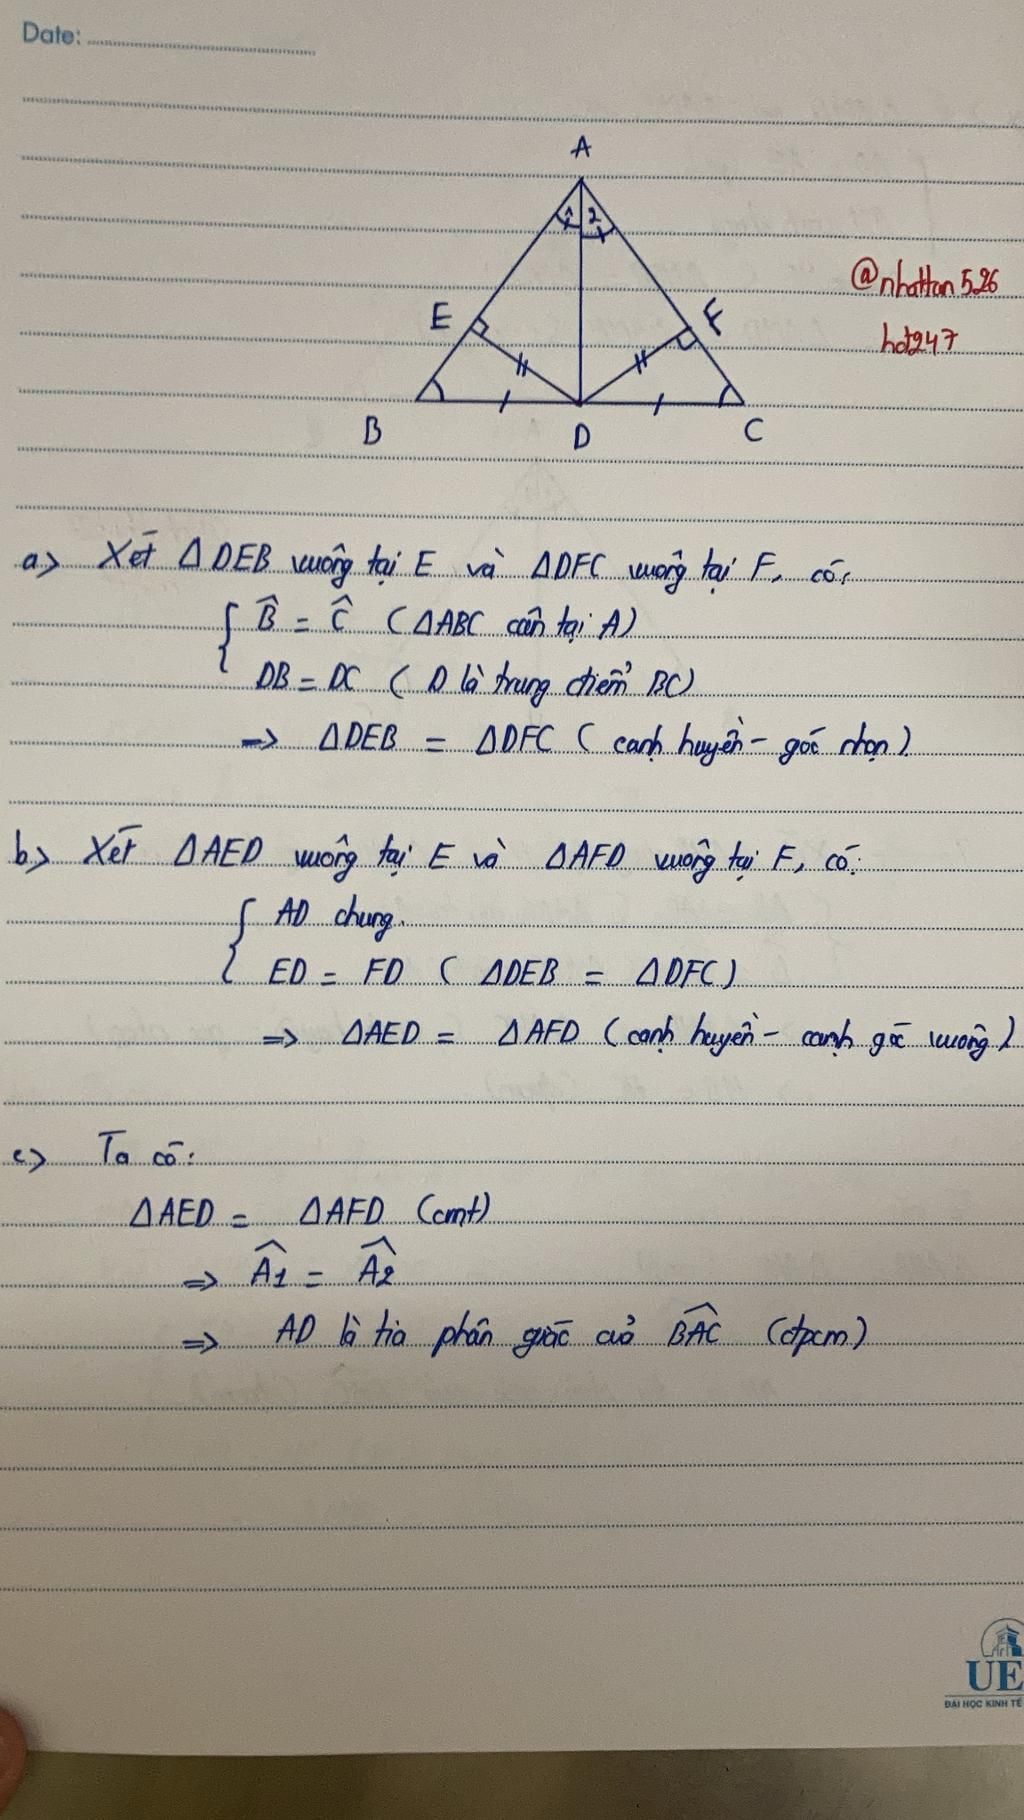 Date:
A
1 2
E F
B D C
@nhattan526
hd247
a> Xét ΔDEB vuông tại E và ΔDFC vuông tại F, có:
B̂ = Ĉ (ΔABC cân tại A)
DB = DC (D là trung điểm BC)
=> ΔDEB = ΔDFC (cạnh huyền - góc nhọn)
b> Xét ΔAED vuông tại E và ΔAFD vuông tại F, có:
AD chung.
ED = FD (ΔDEB = ΔDFC)
=> ΔAED = ΔAFD (cạnh huyền - cạnh góc vuông)
c> Ta có:
ΔAED = ΔAFD (cmt)
=> Â1 = Â2
=> AD là tia phân giác của BÂC (đpcm)
UE
ĐẠI HỌC KINH TẾ